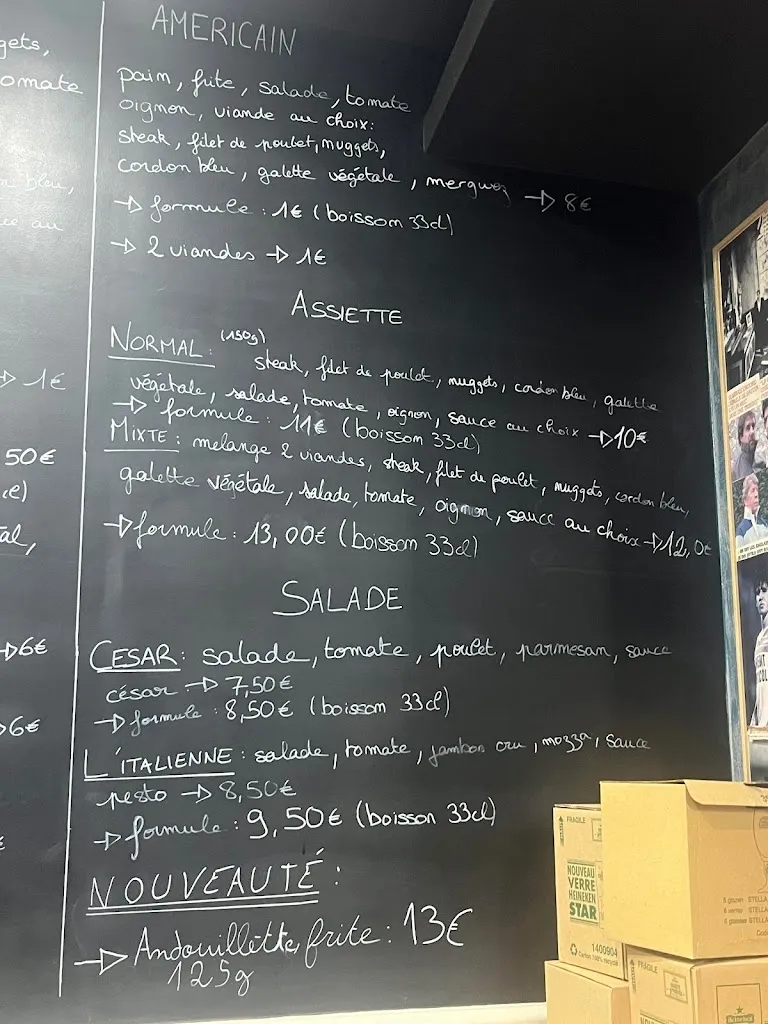 gets,
omate
bleu,
au
1€
50€
al,
→6€
6€
AMERICAIN
pain, frite, salade, tomate
oignon, viande au choix:
steak, filet de poulet, nuggets,
cordon bleu, galette végétale, merguez → 8€
→ formule : 1€ (boisson 33cl)
→ 2 viandes → 1€
ASSIETTE
NORMAL : (150g) steak, filet de poulet, nuggets, cordon bleu, galette
végétale, salade, tomate, oignon, sauce au choix → 10€
→ formule : 11€ (boisson 33cl)
MIXTE : melange 2 viandes, steak, filet de poulet, nuggets, cordon bleu,
galette végétale, salade, tomate, oignon, sauce au choix → 12,0€
→ formule : 13,00€ (boisson 33cl)
SALADE
CESAR : salade, tomate, poulet, parmesan, sauce
césar → 7,50€
→ formule : 8,50€ (boisson 33cl)
L'ITALIENNE : salade, tomate, jambon cru, mozza, sauce
pesto → 8,50€
→ formule : 9,50€ (boisson 33cl)
NOUVEAUTÉ :
→ Andouillette, frite : 13€
125g
FRAGILE
NOUVEAU
VERRE
HEINEKEN
STAR
1400904
STELLA
STELLA
STELLA
FRAGILE